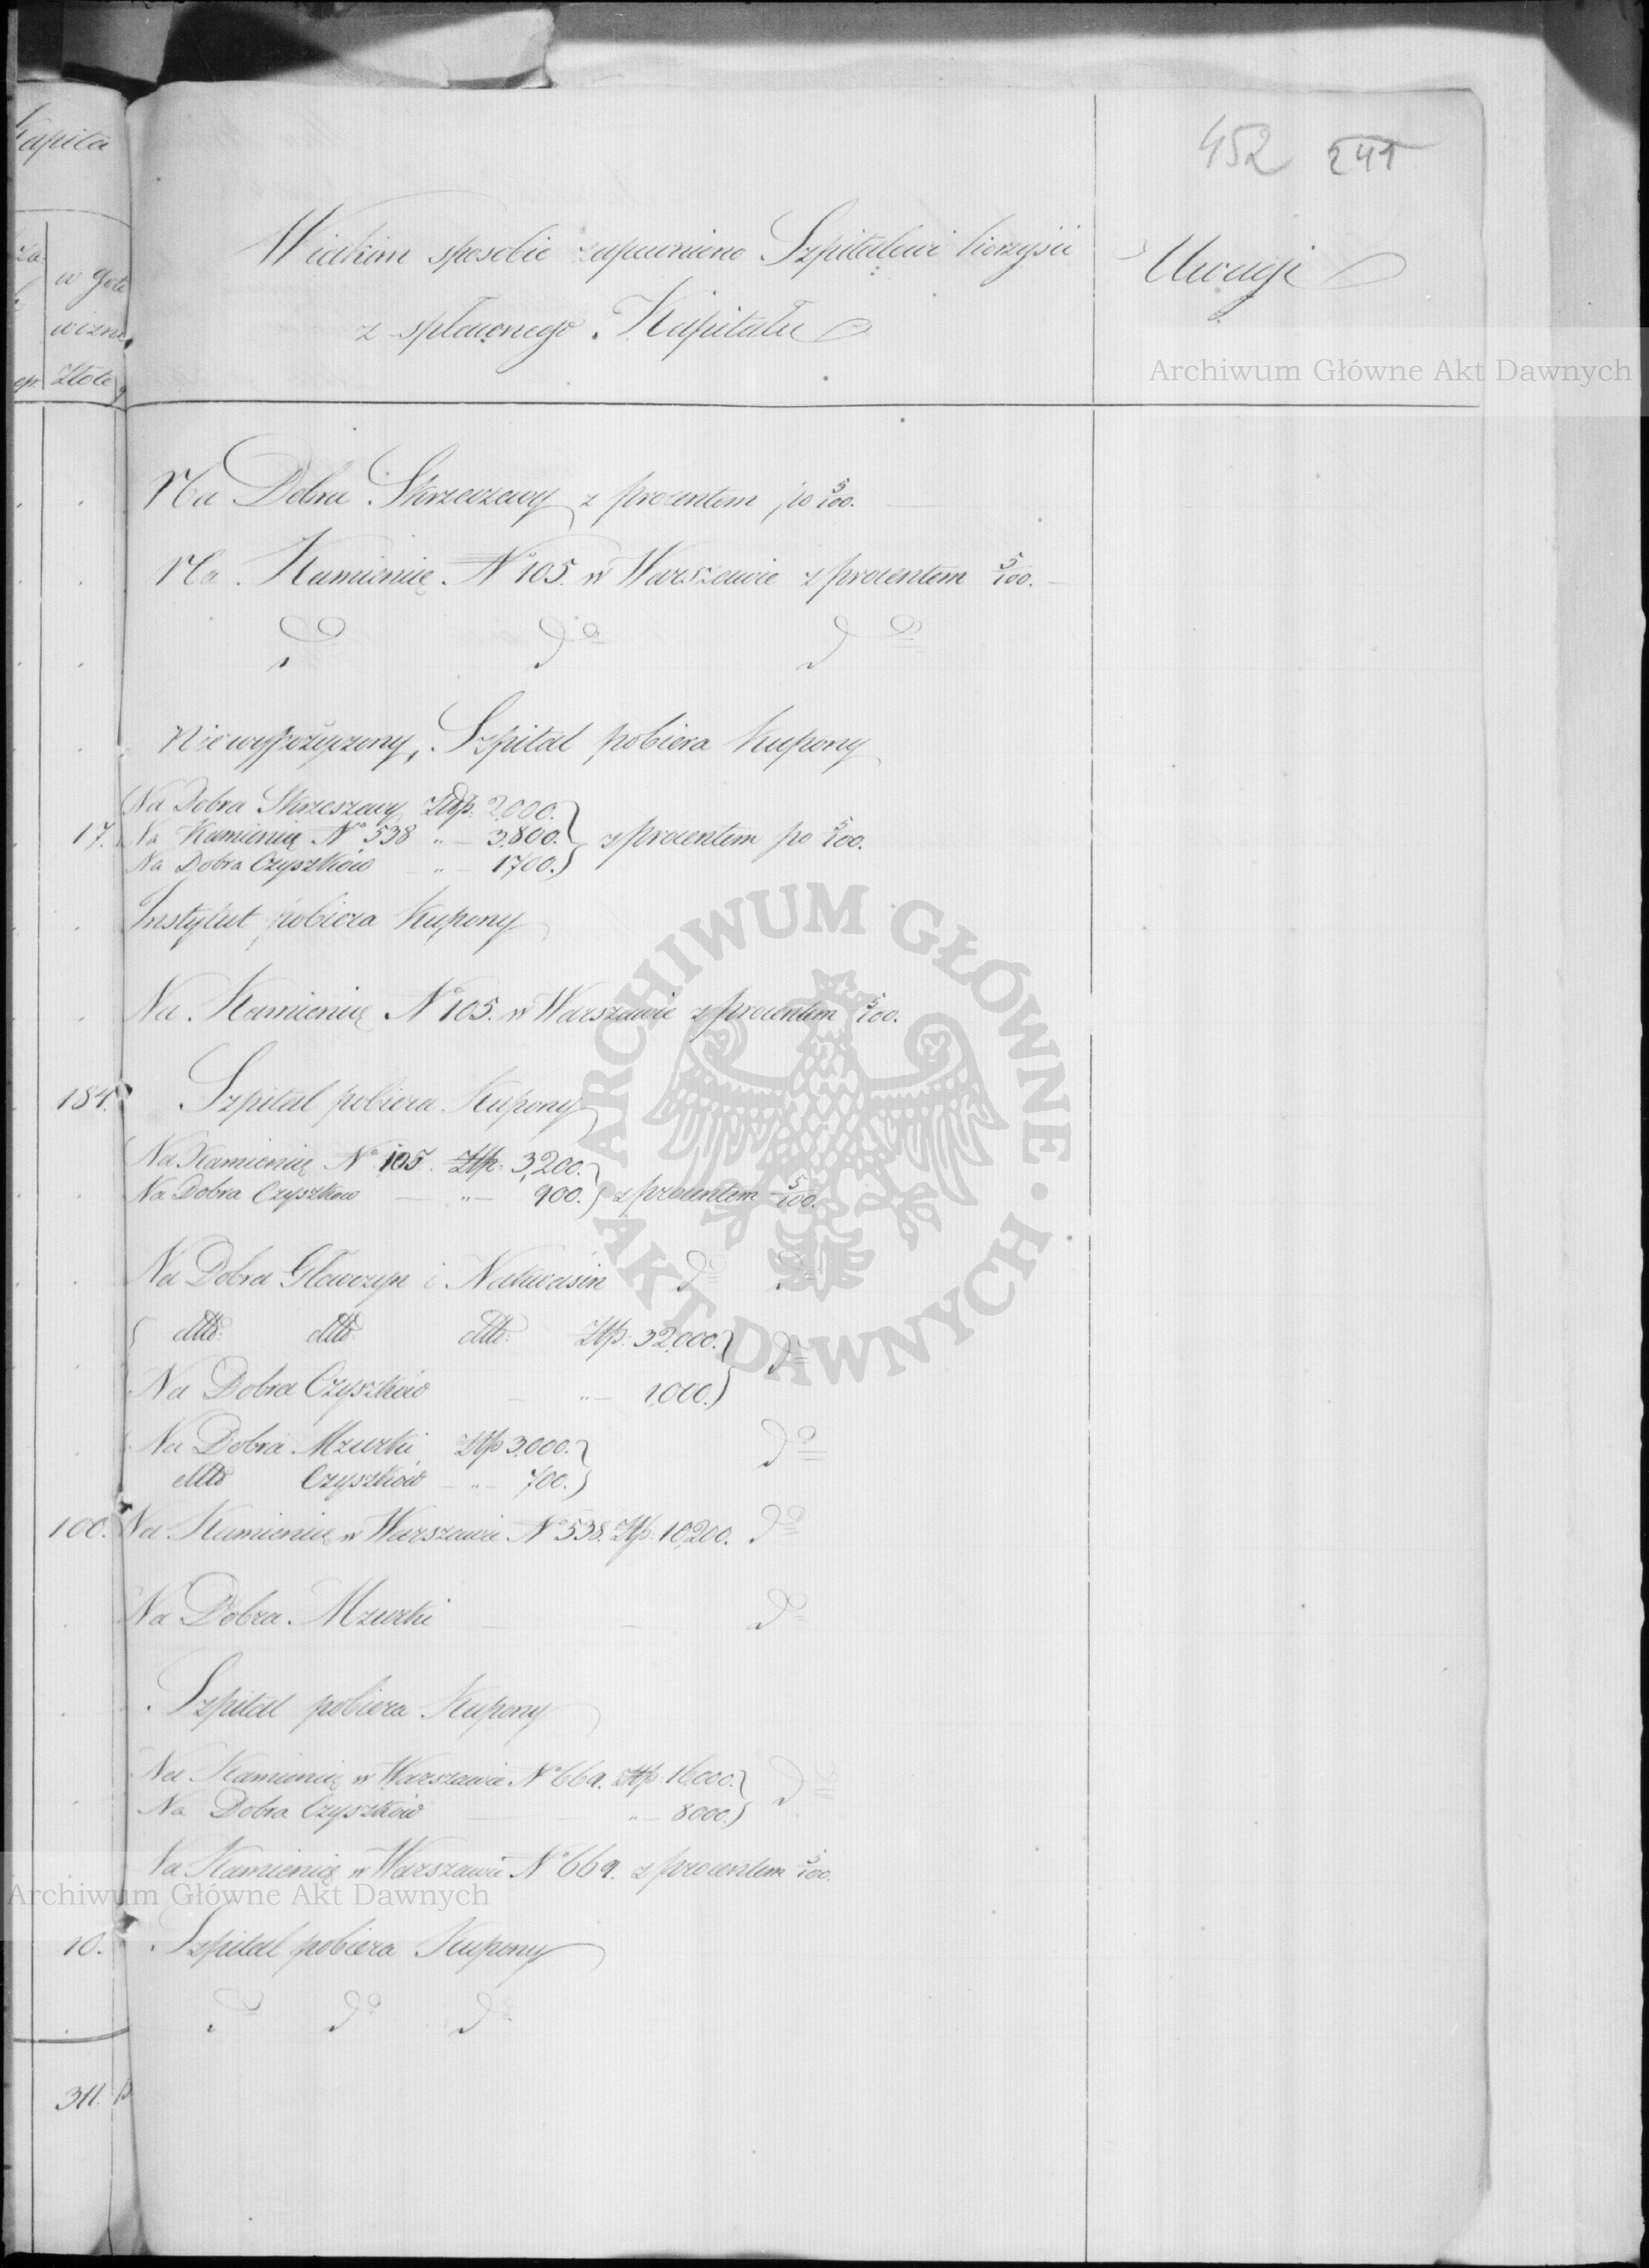 452 241
Kapita
W iakim sposobie zapewniono Szpitalowi korzyści
z spłaconego Kapitału
Uwagi
w goto
wiznie
Złote
Archiwum Główne Akt Dawnych
Na Dobra Skrzeszewy z procentem po 5/100.
Na Kamienicę No 105. w Warszawie z procentem 5/100.
do do do
Niewypożyczony, Szpital pobiera Kupony
Na Dobra Skrzeszewy Złp. 2,000.
17. Na Kamienicę No 538 " 3,800. z procentem po 5/100.
Na Dobra Czyszków " 1700.
Instytut pobiera Kupony
Na Kamienicę No 105. w Warszawie z procentem 5/100.
184. Szpital pobiera Kupony
Na Kamienicę No 105. Złp. 3,200.
Na Dobra Czyszków " 900. z procentem 5/100.
Na Dobra Głowczyn i Natwasin do do
dtto dtto dtto Złp. 32,000. do
Na Dobra Czyszków " 1,000.
Na Dobra Mzurki Złp 3,000. do
dtto Czyszków " 700.
100. Na Kamienicę w Warszawie No 538. Złp. 10,200. do
Na Dobra Mzurki do
Szpital pobiera Kupony
Na Kamienicę w Warszawie No 669. Złp. 16,000. do
Na Dobra Czyszków " 8000.
Na Kamienicę w Warszawie No 669. z procentem 5/100.
Archiwum Główne Akt Dawnych
10. Szpital pobiera Kupony
do do do
311.
ARCHIWUM GŁÓWNE AKT DAWNYCH